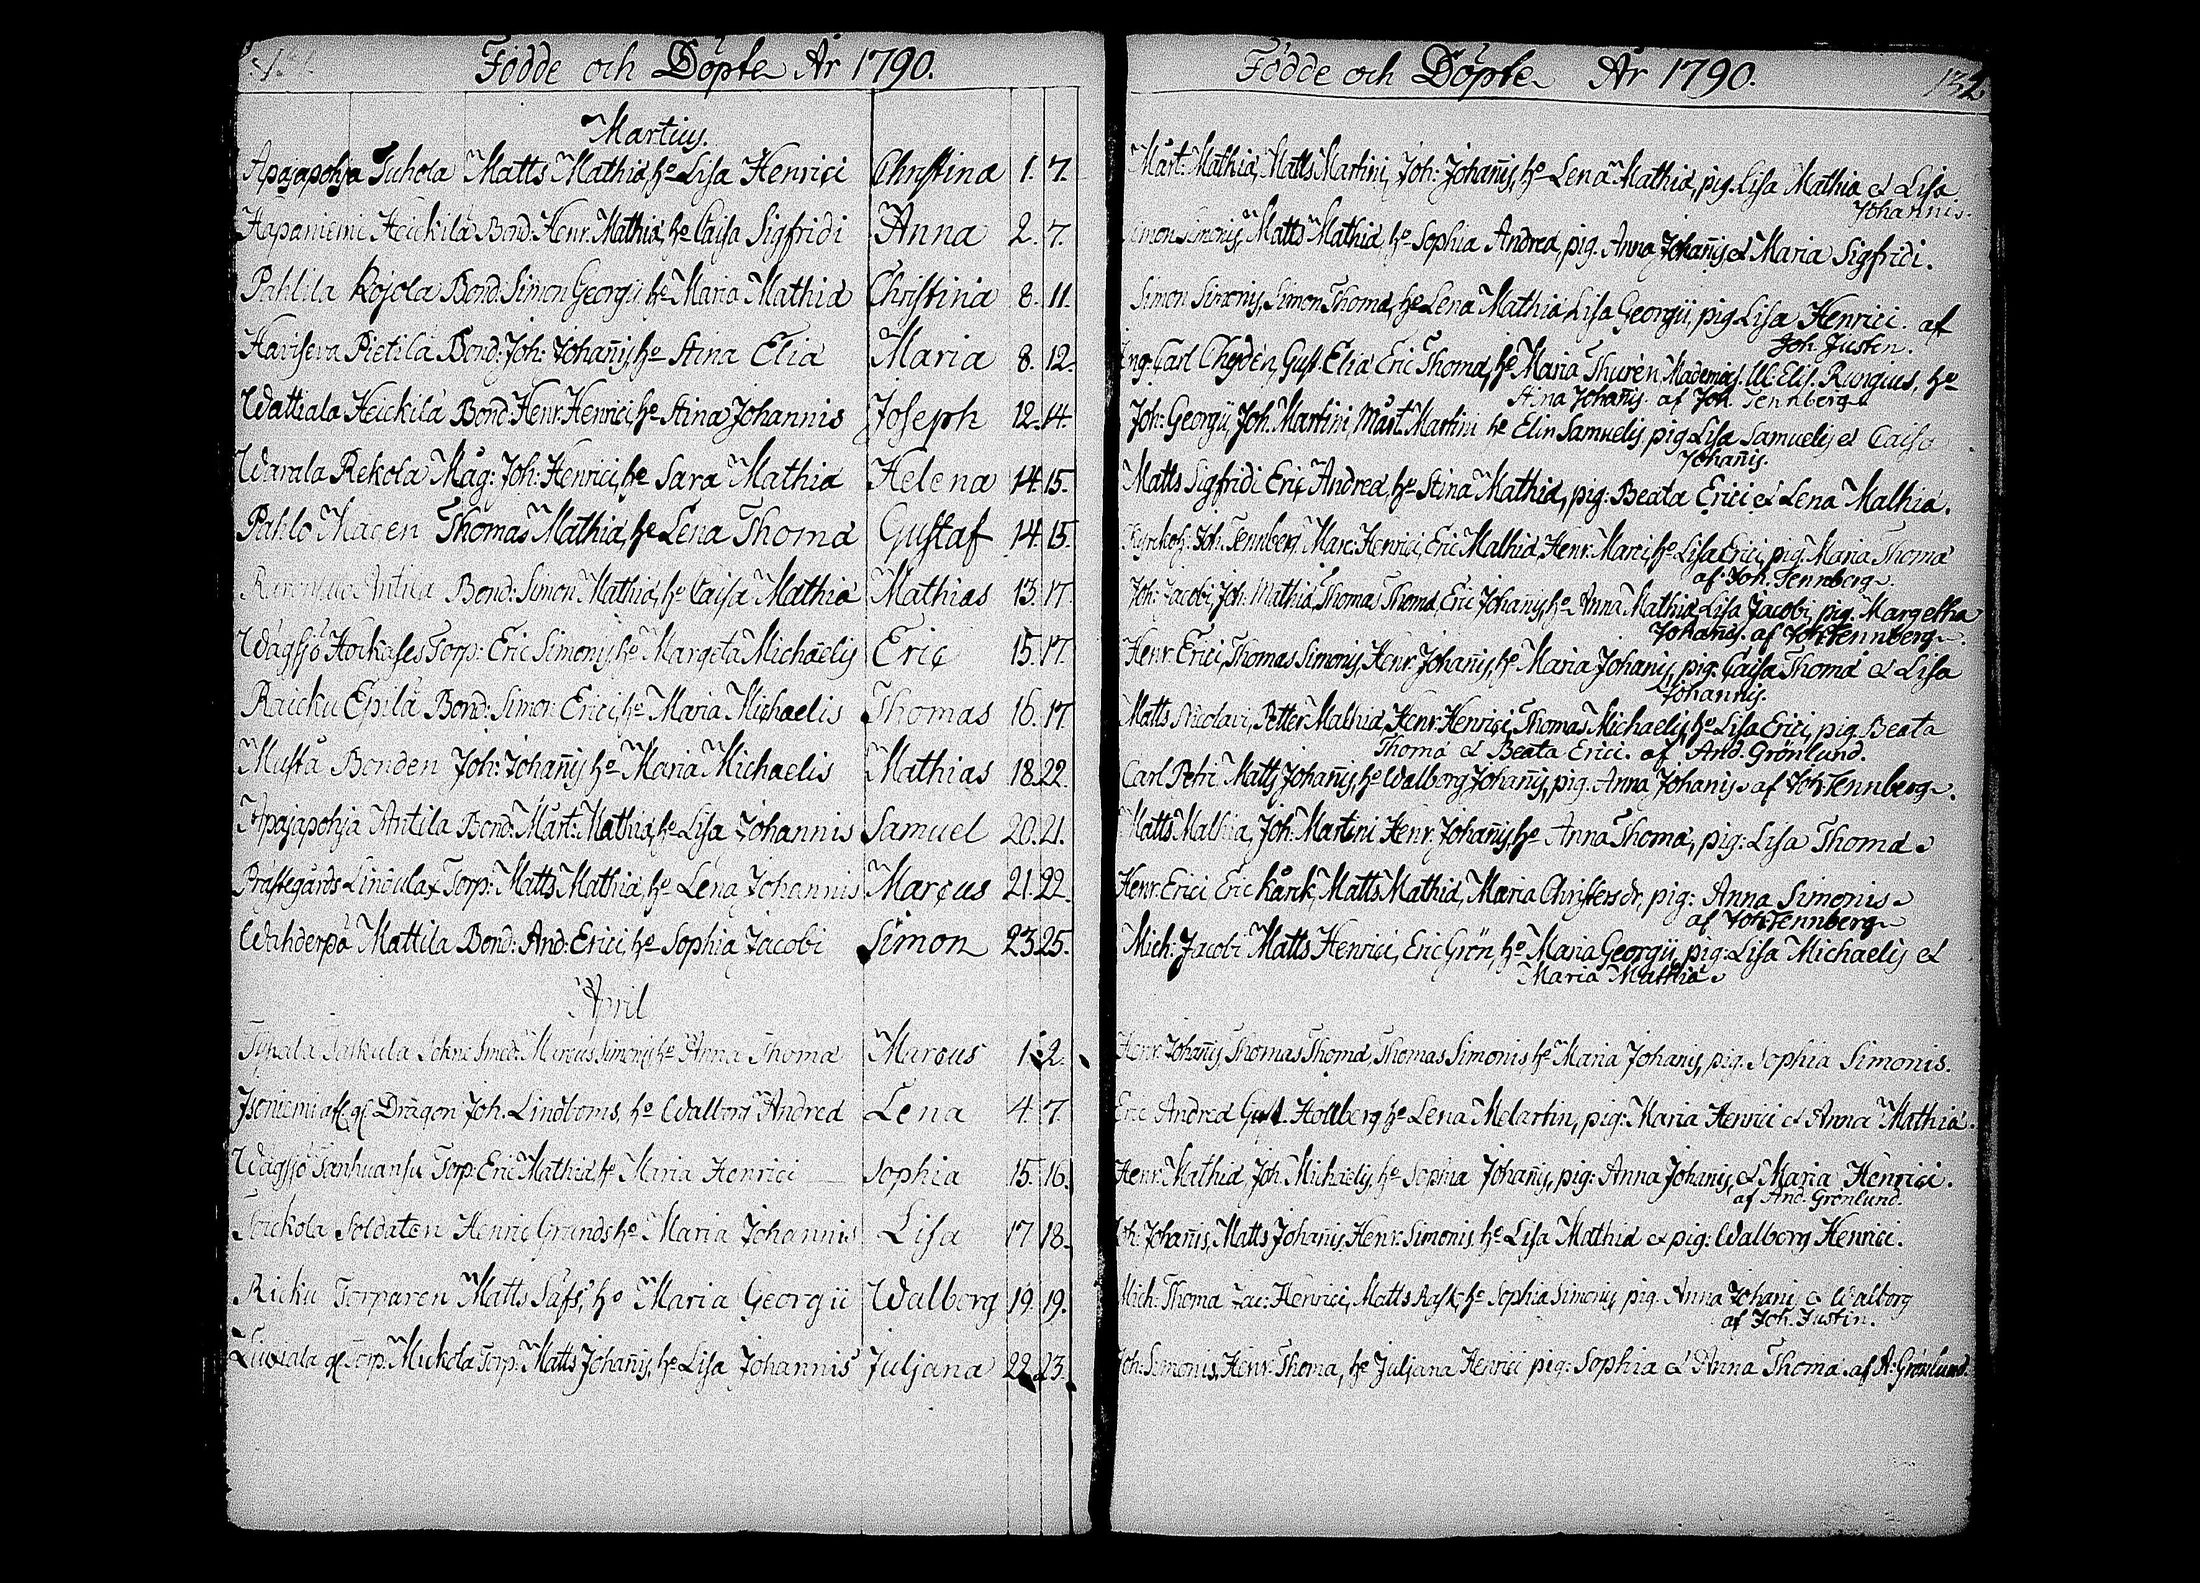 Födde och Döpte År 1790.
Martius.
Apajapohja Juhola Matts Mathiæ, hº Lisa Henrici Christina 1. 7.
Hapaniemi Heickilä Bond: Henr. Mathiæ, hº Caisa Sigfridi Anna 2. 7.
Pahlila Kojola Bond: Simon Georgii hº Maria Mathiæ Christina 8. 11.
Hariseva Pietilä Bond: Joh: Johan̄is, hº Stina Eliæ Maria 8. 12.
Wattiala Heickilä Bond: Henr. Henrici, hº Stina Johannis Joseph 12. 14.
Warala Rekola Måg: Joh: Henrici, hº Sara Mathiæ Helena 14. 15.
Pahlo Thomas Mathiæ, hº Lena Thomæ Gustaf 14. 15.
Antila Bond: Simon Mathiæ, hº Caisa Mathiæ Mathias 13. 17.
Wågsjö Torp: Eric Simonis, hº Margeta Michaelis Eric 15. 17.
Raicku Epilä Bond: Simon Erici, hº Maria Michaelis Thomas 16. 17.
Musta Bonden Joh: Johan̄is hº Maria Michaelis Mathias 18. 22.
Apajapohja Antila Bond: Mårt: Mathiæ, hº Lisa Johannis Samuel 20. 21.
Prästegårds Torp: Matts Mathiæ, hº Lena Johannis Marcus 21. 22.
Wahderpä Mattila Bond: And: Erici, hº Sophia Jacobi Simon 23. 25.
April
Marcus Simonis hº Anna Thomæ Marcus 1. 2.
Isoniemi Dragon Joh. Lindboms, hº Walborg Andreæ Lena 4. 7.
Wågsjö Torp: Eric Mathiæ, hº Maria Henrici Sophia 15. 16.
Toickola Soldaten Henric Grunds hº Maria Johannis Lisa 17 18.
Ricku Torparen Matts Säfs, hº Maria Georgii Walborg 19. 19.
Torp. Mickola Torp. Matts Johan̄is, hº Lisa Johannis Juljana 22. 23.
Födde och Döpte År 1790. 132
Mårt: Mathiæ, Matts Martini, Joh: Johan̄is, hº Lena Mathiæ, pig. Lisa Mathiæ et Lisa
Johannis.
Simon Simonis, Matts Mathiæ, hº Sophia Andreæ, pig. Anna Johan̄is et Maria Sigfridi.
Simon Simonis, Simon Thomæ, hº Lena Mathiæ, Lisa Georgii, pig. Lisa Henrici. af
Joh. Justen.
Carl Chydén, Gust. Eliæ Eric Thomæ, hº Maria Thurén Elis. Rungius, hº
Stina Johan̄is. af Joh. Tennberg.
Joh: Georgii, Joh. Martini, Mårt. Martini hº Elin Samuelis, pig Lisa Samuelis et Caisa
Johan̄is.
Matts Sigfridi Eric Andreæ, hº Stina Mathiæ, pig: Beata Erici et Lena Mathiæ.
Joh. Tennberg. Marc: Henrici, Eric Mathiæ, Henr. Marci, hº Lisa Erici, pig. Maria Thomæ
af Joh. Tennberg.
Joh: Jacobi, Joh. Mathiæ, Thomas Thomæ, Eric Johan̄is, hº Anna Mathiæ, Lisa Jacobi, pig. Margetha
Johan̄is. af Joh Tennberg.
Henr. Erici, Thomas Simonis, Henr. Johan̄is, hº Maria Johanis, pig. Caisa Thomæ et Lisa
Johannis.
Matts Nicolai, Petter Mathiæ, Henr. Henrici, Thomas Michaelis, hº Lisa Erici, pig. Beata
Thomæ et Beata Erici. af And. Grönlund.
Carl Petri Matts Johan̄is, hº Walborg Johan̄is, pig. Anna Johanis af Joh Tennberg.
Matts Mathiæ, Joh: Martini Henr. Johan̄is, hº Anna Thomæ, pig: Lisa Thomæ
Henr. Erici Eric Kårck, Matts Mathiæ, Maria Christersdr, pig: Anna Simonis
af Joh Tennberg
Mich: Jacobi Matts Henrici, Eric Grön, hº Maria Georgii, pig: Lisa Michaelis et
Maria Mathiæ
Henr. Johan̄is, Thomas Thomæ, Thomas Simonis hº Maria Johanis, pig. Sophia Simonis.
Eric Andreæ Gust. Hollberg hº Lena Melartin, pig: Maria Henrici et Anna Mathiæ.
Henr. Mathiæ, Joh. Michaelis, hº Sophia Johan̄is, pig: Anna Johanis, et Maria Henrici.
af And. Grönlund.
Joh: Johan̄is, Matts Johan̄is, Henr. Simonis, hº Lisa Mathiæ et pig: Walborg Henrici.
Mich: Thomæ Jac: Henrici, Matts Rask, hº Sophia Simonis pig. Anna Johani et Walborg
af Joh. Justin.
Joh: Simonis, Henr. Thomæ, hº Juljana Henrici pig: Sophia et Anna Thomæ af A: Grönlund.